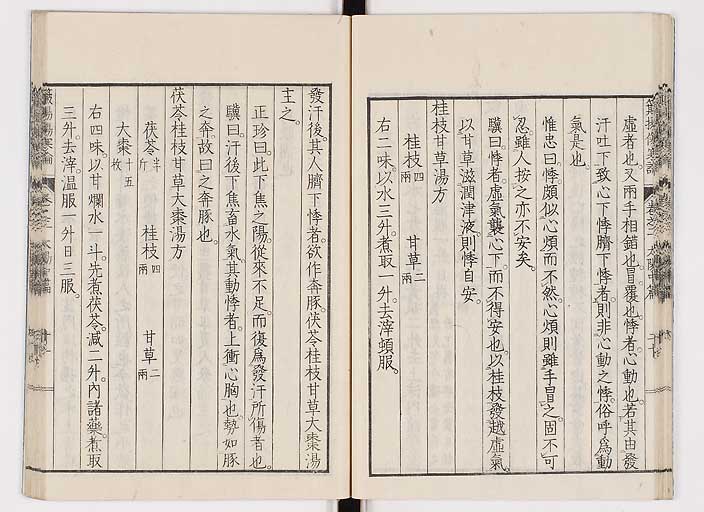 虛者也又兩手相錯也冒覆也悸者心動也若其由發
汗吐下致心下悸臍下悸者則非心動之悸俗呼為動
氣是也
惟忠曰悸頗似心煩而不然心煩則雖手冒之固不可
忍雖人按之亦不安矣
驥曰悸者虛氣襲心下而不得安也以桂枝發越虛氣
以甘草滋潤津液則悸自安
桂枝甘草湯方
桂枝四兩 甘草二兩
右二味以水三升煮取一升去滓頓服
發汗後其人臍下悸者欲作奔豚茯苓桂枝甘草大棗湯
主之
正珍曰此下焦之陽從來不足而復為發汗所傷者也
驥曰汗後下焦畜水氣其動悸者上衝心胸也勢如豚
之奔故曰之奔豚也
茯苓桂枝甘草大棗湯方
茯苓半斤 桂枝四兩 甘草二兩
大棗十五枚
右四味以甘爛水一斗先煮茯苓減二升內諸藥煮取
三升去滓溫服一升日三服